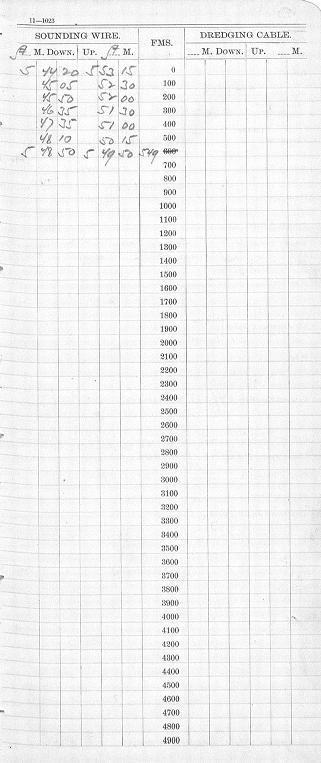 11—1023
SOUNDING WIRE. FMS. DREDGING CABLE.
M. DOWN. UP. M. M. DOWN. UP. M.
5 44 20 5 53 15 0
45 05 52 30 100
45 50 52 00 200
46 35 51 30 300
47 35 51 00 400
48 10 50 15 500
5 48 50 5 49 50 549 600
700
800
900
1000
1100
1200
1300
1400
1500
1600
1700
1800
1900
2000
2100
2200
2300
2400
2500
2600
2700
2800
2900
3000
3100
3200
3300
3400
3500
3600
3700
3800
3900
4000
4100
4200
4300
4400
4500
4600
4700
4800
4900